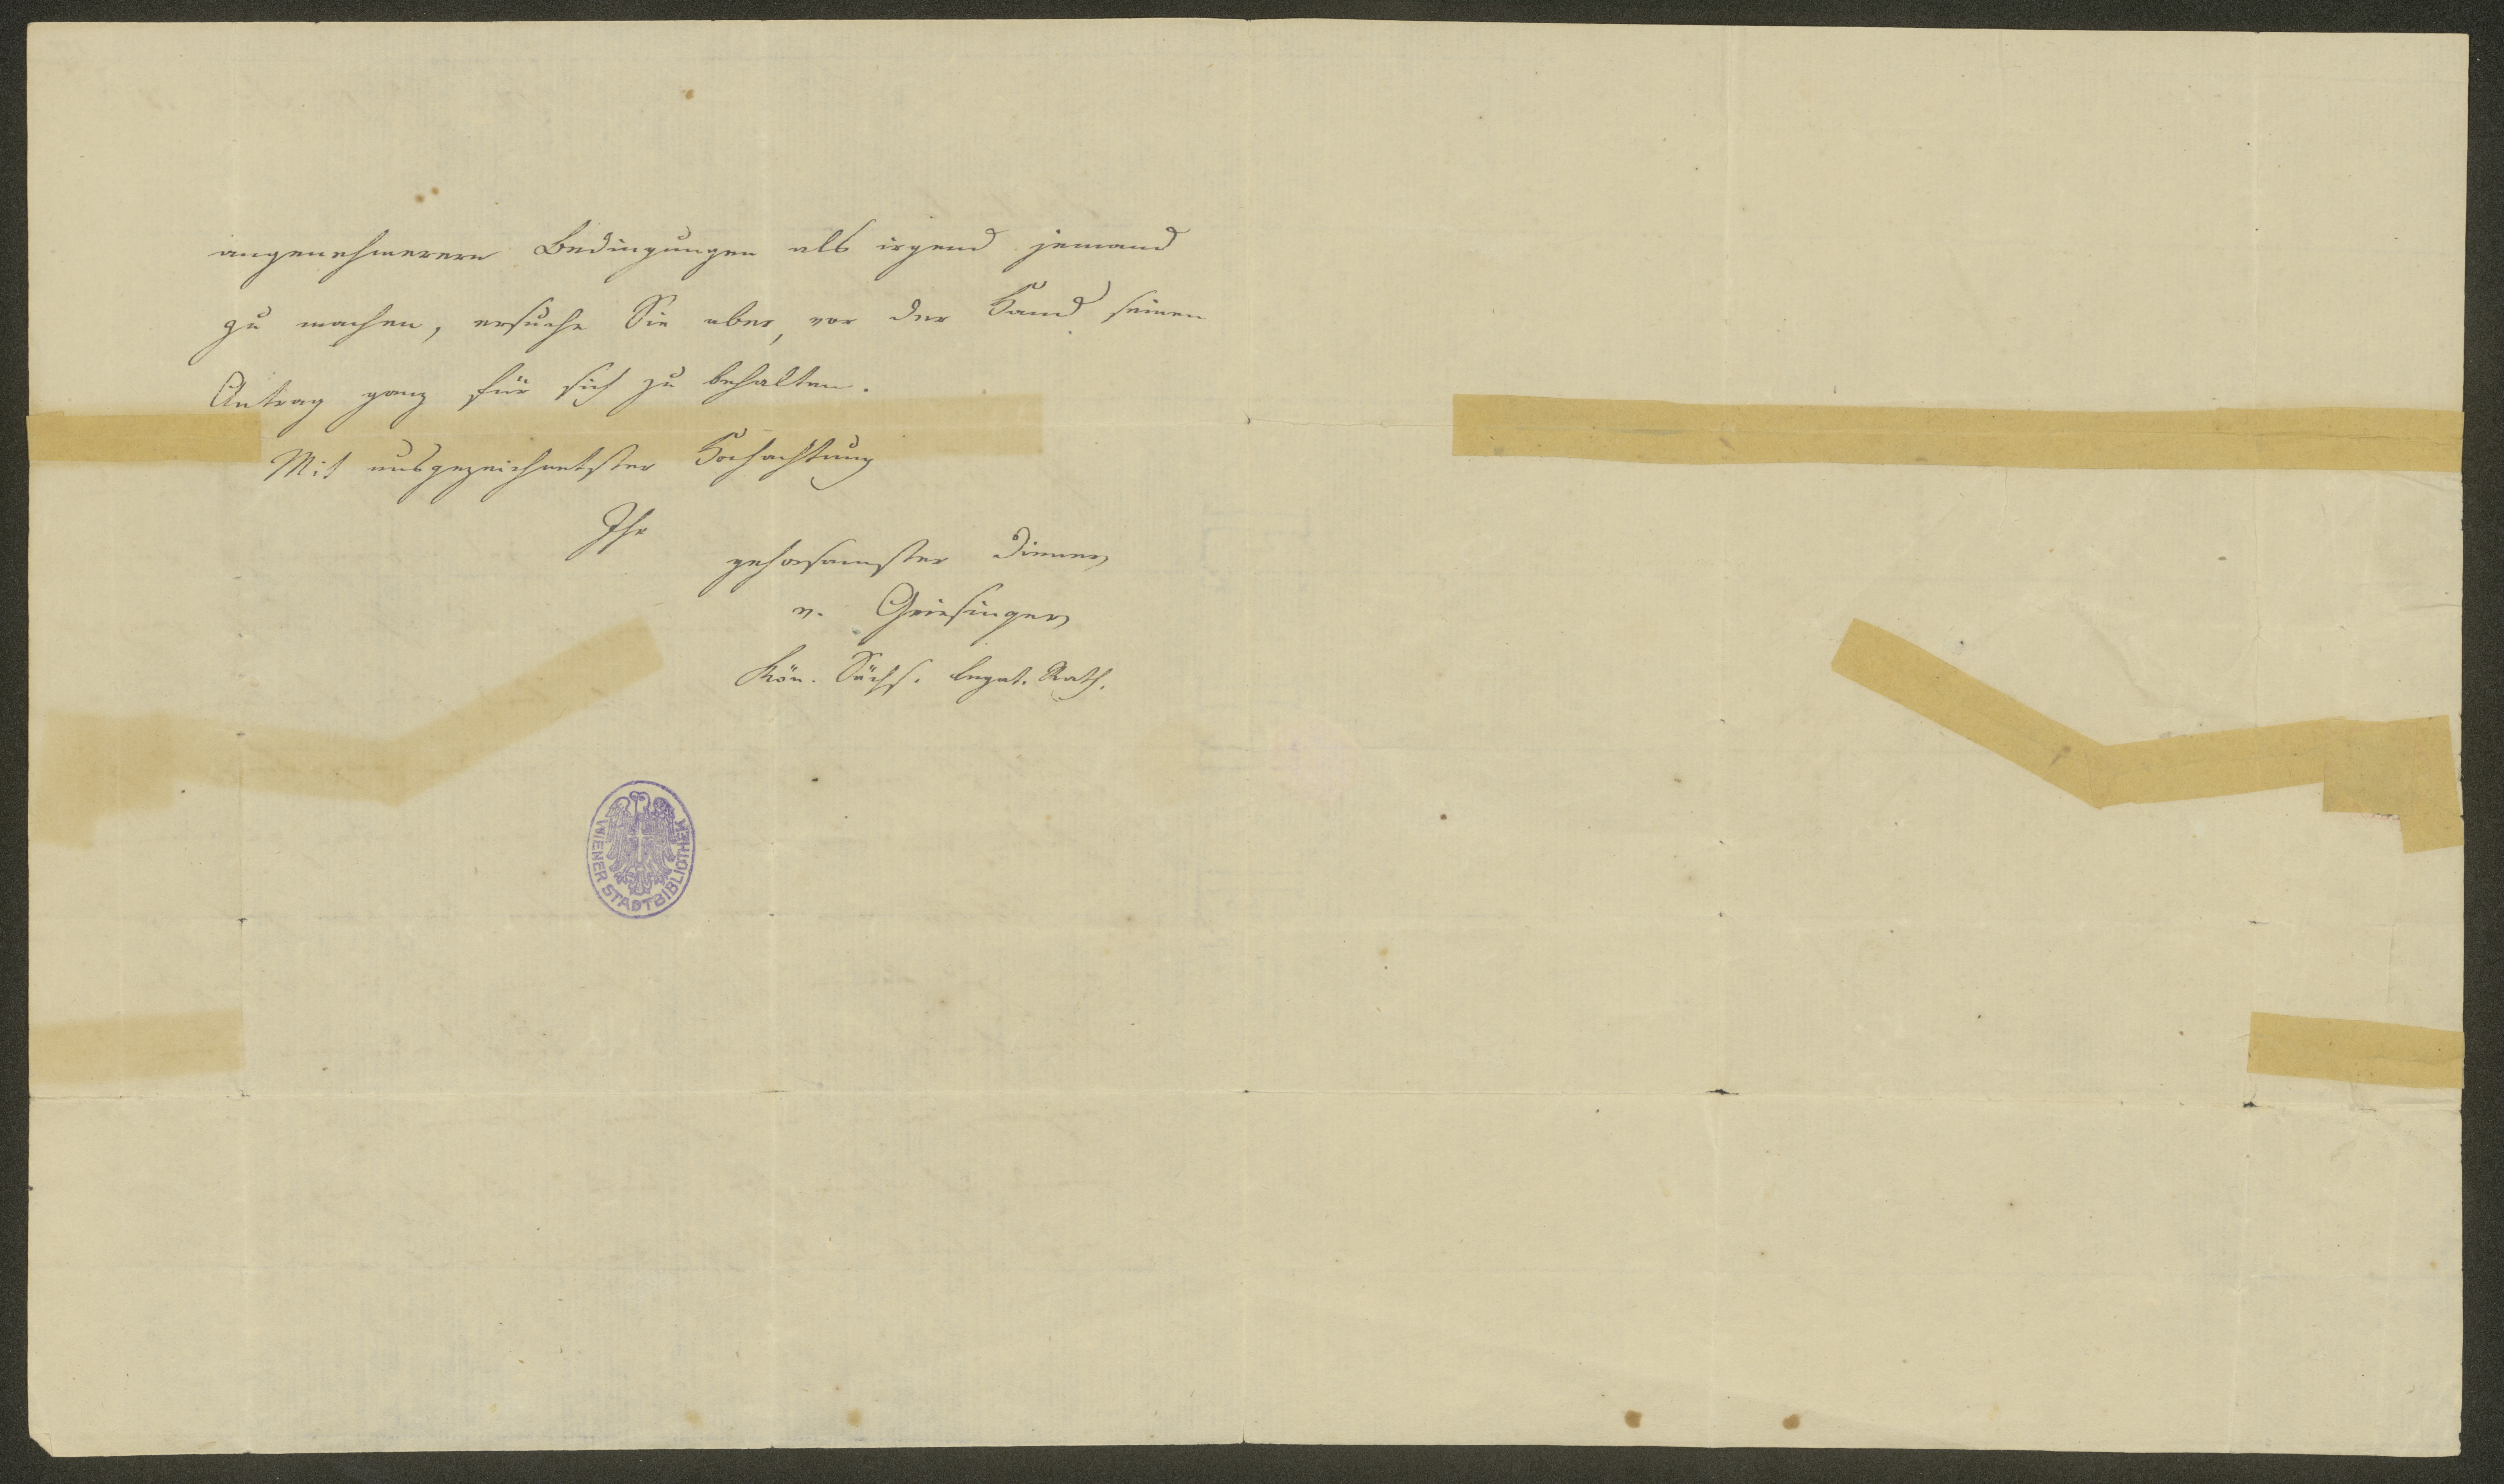 angenehmeren Bedingungen als irgend jemand
zu machen, ersuche Sie aber, vor der Hand seinen
Antrag ganz für sich zu behalten.
Mit ausgezeichnetster Hochachtung
Ihr
gehorsamster Diener
v. Griesinger
Kön. Sächs. Legat. Rath.
WIENER STADTBIBLIOTHEK